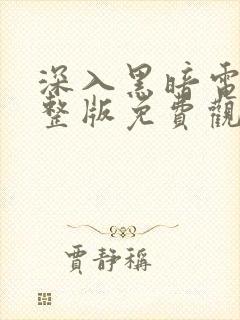 深入黑暗電
整版免費觀
賈靜稱